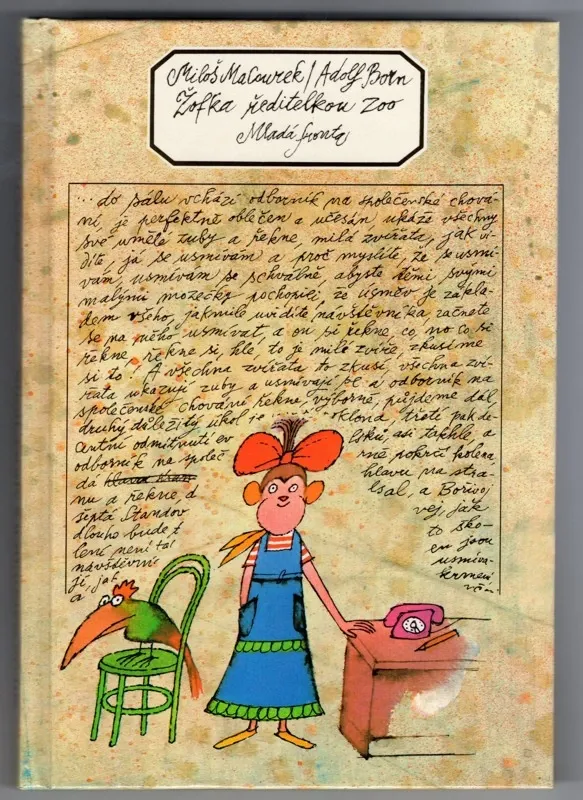 Miloš Macourek / Adolf Born
Žofka ředitelkou zoo
Mladá fronta
...do sálu vchází odborník na společenské chová-
ní, je perfektně oblečen a učesán ukáže všechny
své umělé zuby a řekne, milá zvířata, jak vi-
díte, já se usmívám a proč myslíte, že se usmí-
vám, usmívám se schválně abyste těmi svými
malými mozečky pochopili, že úsměv je zákla-
dem všeho, jakmile uvidíte návštěvníka, začnete
se na něho usmívat, a on si řekne, co, no co si
řekne, řekne si, hle, to je milé zvíře, zkusíme
si to! A všechna zvířata to zkusí, všechna zví-
řata ukazují zuby a usmívají se a odborník na
společenské chování řekne, výborně, půjdeme dál
druhý důležitý úkol je úklona, třetí pak de-
centní odmítnutí ev
odborník na společ ně pokrčí kolena,
dá hlavu na stra-
nu a řekne, d sál, a Bořivoj
šeptá Standov vej, jak
dlouho bude t to sko-
lení není ta en jsou
návštěvní usmíva-
jí, jak krmení
a